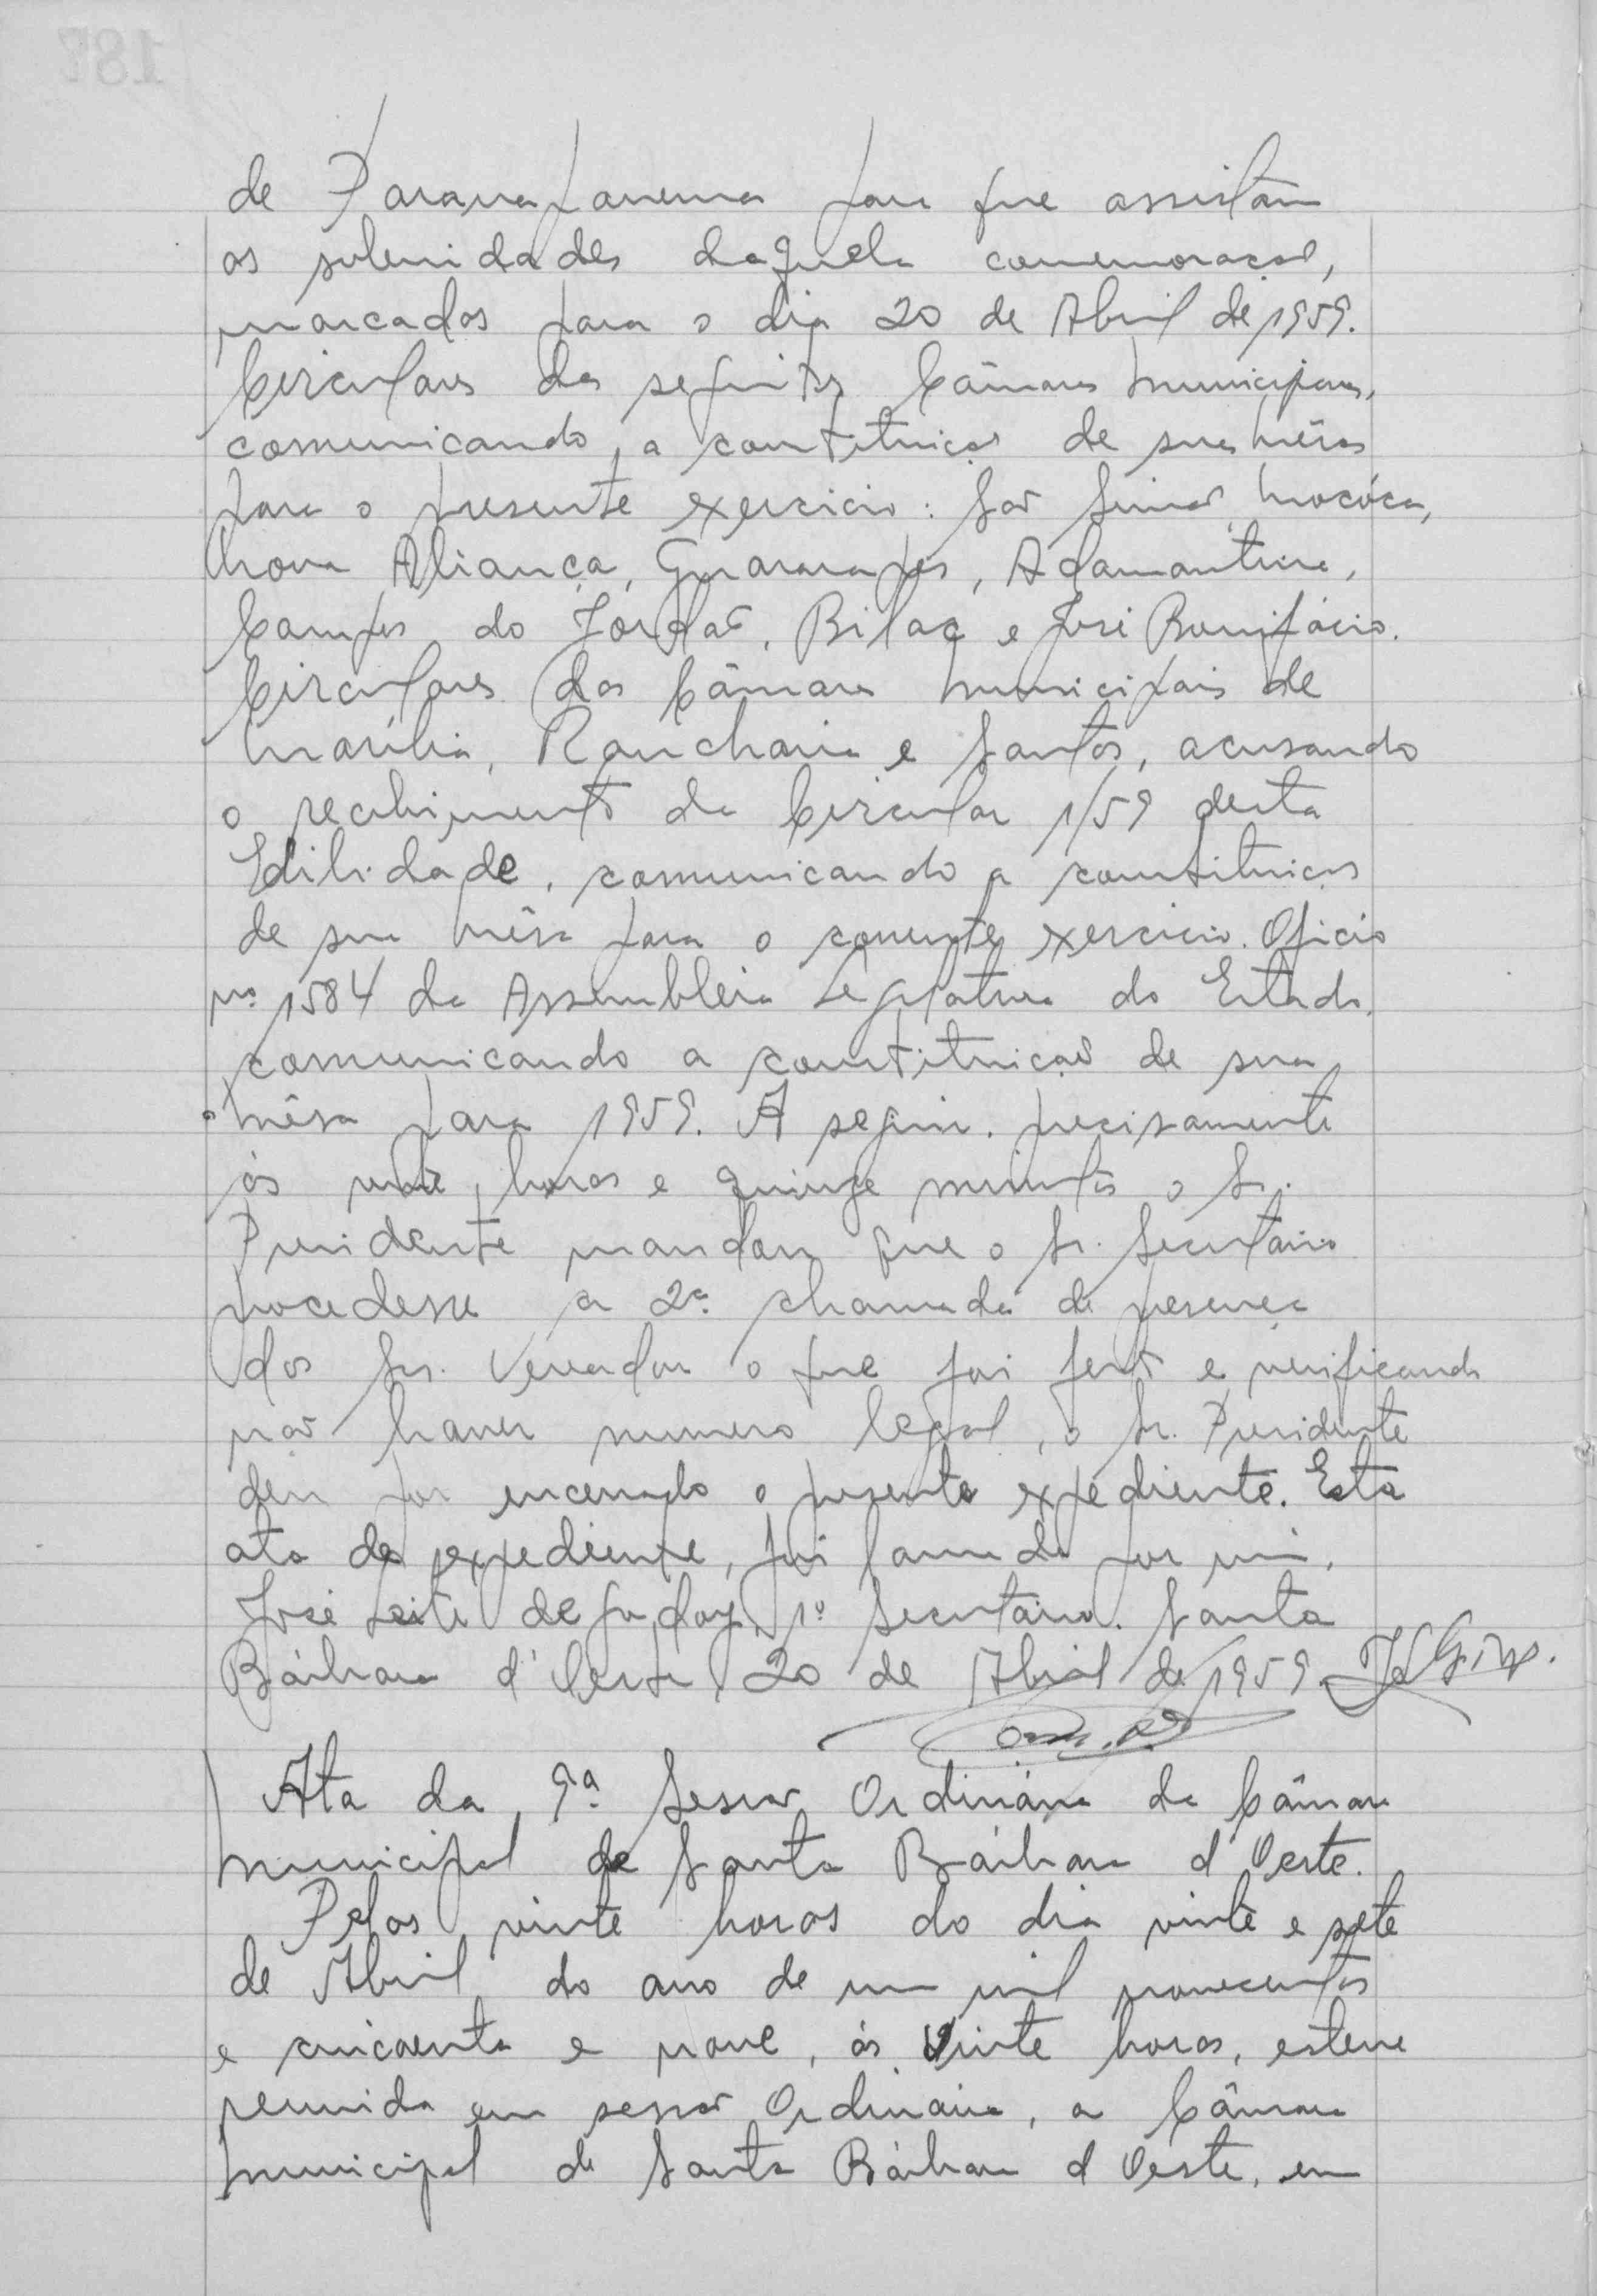 de Paranapanema para que assistam
as solenidades daquela comemoração,
marcadas para o dia 20 de Abril de 1959.
Circulares das seguintes Câmaras Municipais,
comunicando a constituição de suas mêsas
para o presente exercicio: São Simão, Mocóca,
Nova Aliança, Guararapes, Adamantina,
Campos do Jordão, Bilac e José Bonifácio.
Circulares das Câmaras Municipais de
Marília, Rancharia e Santos, acusando
o recebimento da Circular 1/59 desta
Edilidade, comunicando a constituição
de sua mêsa para o corrente exercicio. Oficio
nº 1584 da Assembleia Legislativa do Estado,
comunicando a constituição de sua
mêsa para 1959. A seguir, precisamente
ás vinte horas e quinze minutos o Sr.
Presidente mandou que o Sr. Secretário
procedesse a 2ª chamada de presença
dos Srs. Vereadores o que foi feito e verificando
não haver numero legal, o Sr. Presidente
deu por encerrado o presente expediente. Esta
ata de expediente, foi lavrada por mim,
José Leite de Godoy, 1º Secretário. Santa
Bárbara d'Oeste, 20 de Abril de 1959.
Ata da 9ª Sessão Ordinária da Câmara
Municipal de Santa Bárbara d'Oeste.
Pelas vinte horas do dia vinte e sete
de Abril do ano de um mil novecentos
e cincoenta e nove, ás vinte horas, esteve
reunida em sessão Ordinaria, a Câmara
Municipal de Santa Bárbara d'Oeste, em